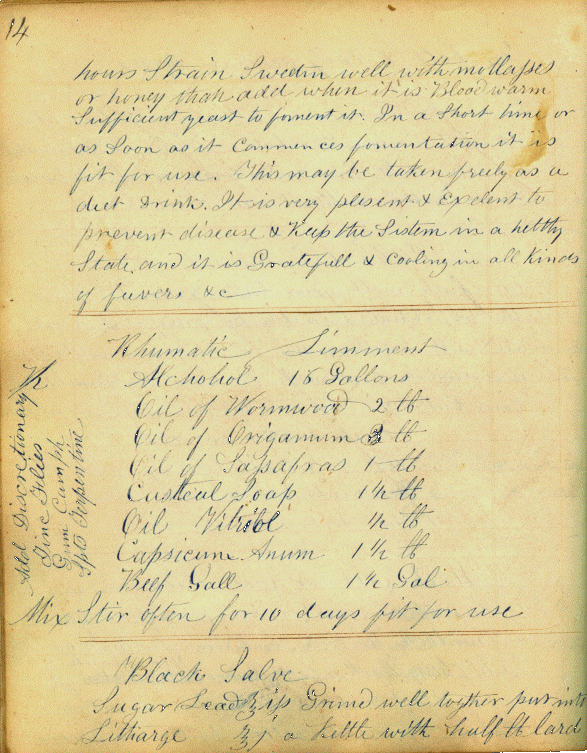 14
hours Strain Sweeten well with mollasses
or honey than add when it is Blood warm
Sufficient yeast to foment it. In a Short time or
as Soon as it Commences fomentation it is
fit for use. This may be taken freely as a
diet Drink. It is very plesent & Exelent to
prevent disease & Keep the Sistem in a helthy
State and it is Gratefull & Cooling in all Kinds
of fevers &c
Rhumatic Liniment
Alchohol 16 Gallons
Oil of Wormwood 2 lb
Oil of Origanum 3 lb
Oil of Sasafras 1 lb
Casteal Soap 1½ lb
Oil Vitriol ½ lb
Capsicum Anum 1½ lb
Beef Gall 1½ Gal
Mix Stir often for 10 days fit for use
Add Discretionary
Tinc Flies
Gum Camph
Spts Terpentine
Black Salve
Sugar Lead ʒiſs Grind well togther put into
Litharge ʒj a Kettle with half lb lard